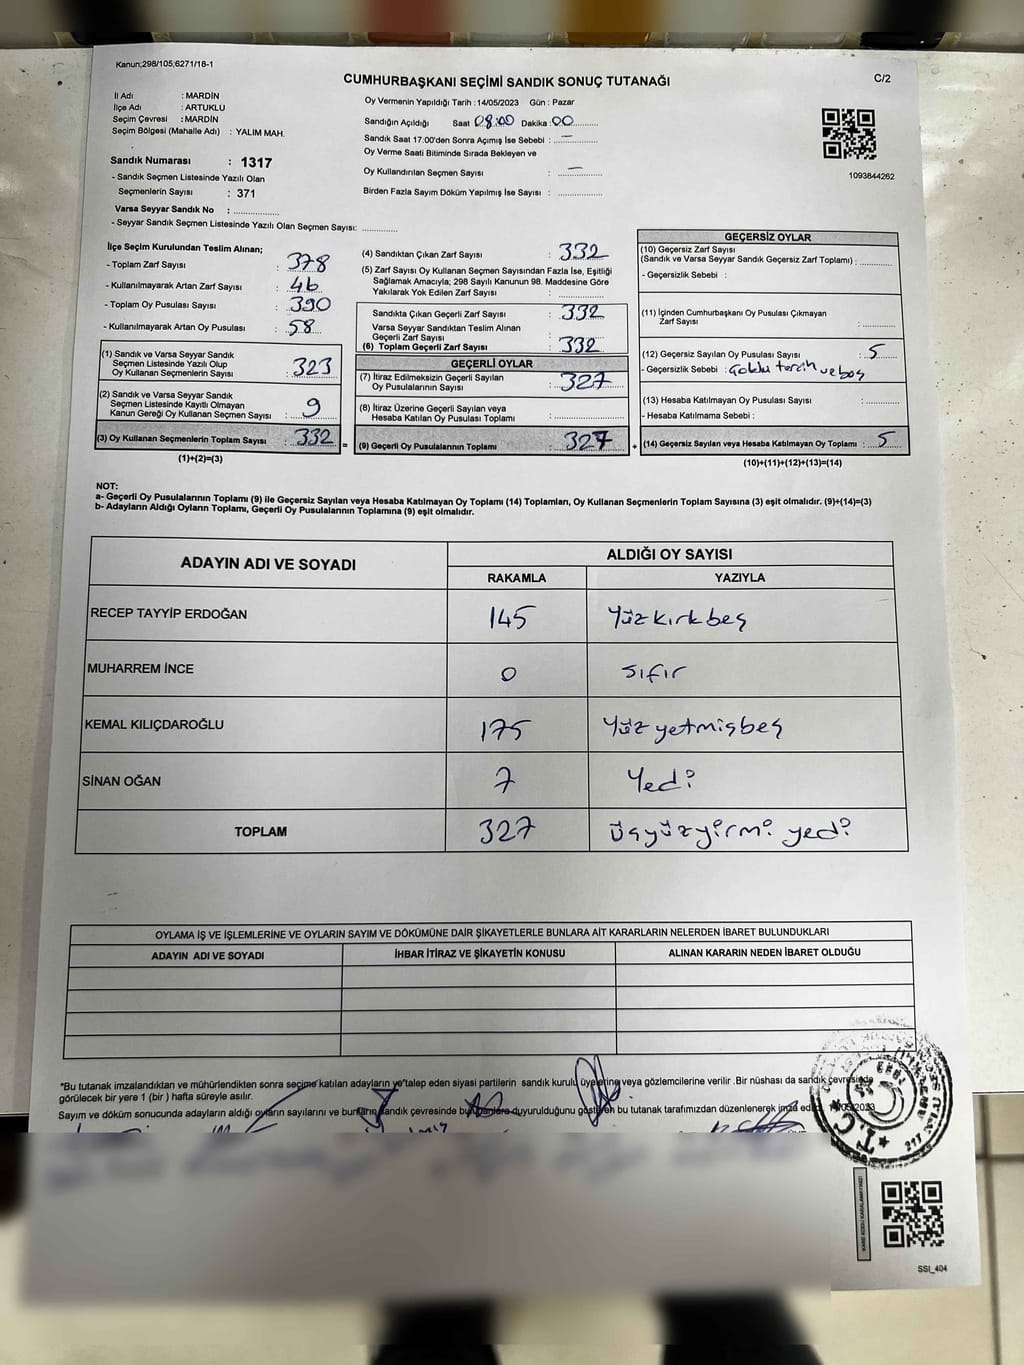 Kanun;298/105;6271/18-1
CUMHURBAŞKANI SEÇİMİ SANDIK SONUÇ TUTANAĞI
C/2
İl Adı : MARDİN
İlçe Adı : ARTUKLU
Seçim Çevresi : MARDİN
Seçim Bölgesi (Mahalle Adı) : YALIM MAH.
Sandık Numarası : 1317
- Sandık Seçmen Listesinde Yazılı Olan
Seçmenlerin Sayısı : 371
Varsa Seyyar Sandık No : ................
- Seyyar Sandık Seçmen Listesinde Yazılı Olan Seçmen Sayısı: ............
Oy Vermenin Yapıldığı Tarih : 14/05/2023 Gün : Pazar
Sandığın Açıldığı Saat 08:00 Dakika : 00
Sandık Saat 17:00'den Sonra Açımış İse Sebebi : —
Oy Verme Saati Bitiminde Sırada Bekleyen ve
Oy Kullandırılan Seçmen Sayısı : —
Birden Fazla Sayım Döküm Yapılmış İse Sayısı : ............
1093844262
İlçe Seçim Kurulundan Teslim Alınan;
- Toplam Zarf Sayısı : 378
- Kullanılmayarak Artan Zarf Sayısı : 46
- Toplam Oy Pusulası Sayısı : 390
- Kullanılmayarak Artan Oy Pusulası : 58
(1) Sandık ve Varsa Seyyar Sandık
Seçmen Listesinde Yazılı Olup
Oy Kullanan Seçmenlerin Sayısı : 323
(2) Sandık ve Varsa Seyyar Sandık
Seçmen Listesinde Kayıtlı Olmayan
Kanun Gereği Oy Kullanan Seçmen Sayısı : 9
(3) Oy Kullanan Seçmenlerin Toplam Sayısı : 332
(1)+(2)=(3)
(4) Sandıktan Çıkan Zarf Sayısı : 332
(5) Zarf Sayısı Oy Kullanan Seçmen Sayısından Fazla İse, Eşitliği
Sağlamak Amacıyla; 298 Sayılı Kanunun 98. Maddesine Göre
Yakılarak Yok Edilen Zarf Sayısı : ............
Sandıkta Çıkan Geçerli Zarf Sayısı : 332
Varsa Seyyar Sandıktan Teslim Alınan
Geçerli Zarf Sayısı :
(6) Toplam Geçerli Zarf Sayısı : 332
GEÇERLİ OYLAR
(7) İtiraz Edilmeksizin Geçerli Sayılan
Oy Pusulalarının Sayısı : 327
(8) İtiraz Üzerine Geçerli Sayılan veya
Hesaba Katılan Oy Pusulası Toplamı : ............
= (9) Geçerli Oy Pusulalarının Toplamı : 327
GEÇERSİZ OYLAR
(10) Geçersiz Zarf Sayısı
(Sandık ve Varsa Seyyar Sandık Geçersiz Zarf Toplamı) : ........
- Geçersizlik Sebebi :
(11) İçinden Cumhurbaşkanı Oy Pusulası Çıkmayan
Zarf Sayısı : ............
(12) Geçersiz Sayılan Oy Pusulası Sayısı : 5
- Geçersizlik Sebebi : Çoklu tercih ve boş
(13) Hesaba Katılmayan Oy Pusulası Sayısı : ............
- Hesaba Katılmama Sebebi :
+ (14) Geçersiz Sayılan veya Hesaba Katılmayan Oy Toplamı : 5
(10)+(11)+(12)+(13)=(14)
NOT:
a- Geçerli Oy Pusulalarının Toplamı (9) ile Geçersiz Sayılan veya Hesaba Katılmayan Oy Toplamı (14) Toplamları, Oy Kullanan Seçmenlerin Toplam Sayısına (3) eşit olmalıdır. (9)+(14)=(3)
b- Adayların Aldığı Oyların Toplamı, Geçerli Oy Pusulalarının Toplamına (9) eşit olmalıdır.
ADAYIN ADI VE SOYADI ALDIĞI OY SAYISI
RAKAMLA YAZIYLA
RECEP TAYYİP ERDOĞAN 145 Yüzkırkbeş
MUHARREM İNCE 0 sıfır
KEMAL KILIÇDAROĞLU 175 Yüz yetmişbeş
SİNAN OĞAN 7 Yedi
TOPLAM 327 üçyüzyirmi yedi
OYLAMA İŞ VE İŞLEMLERİNE VE OYLARIN SAYIM VE DÖKÜMÜNE DAİR ŞİKAYETLERLE BUNLARA AİT KARARLARIN NELERDEN İBARET BULUNDUKLARI
ADAYIN ADI VE SOYADI İHBAR İTİRAZ VE ŞİKAYETİN KONUSU ALINAN KARARIN NEDEN İBARET OLDUĞU
*Bu tutanak imzalandıktan ve mühürlendikten sonra seçime katılan adayların ve talep eden siyasi partilerin sandık kurulu üyelerine veya gözlemcilerine verilir .Bir nüshası da sandık çevresinde
görülecek bir yere 1 (bir ) hafta süreyle asılır.
Sayım ve döküm sonucunda adayların aldığı oyların sayılarını ve bunların sandık çevresinde duyurulduğunu gösteren bu tutanak tarafımızdan düzenlenerek imza
T.C.
KARE KODU KARALAMAYINIZ!
SSI_404